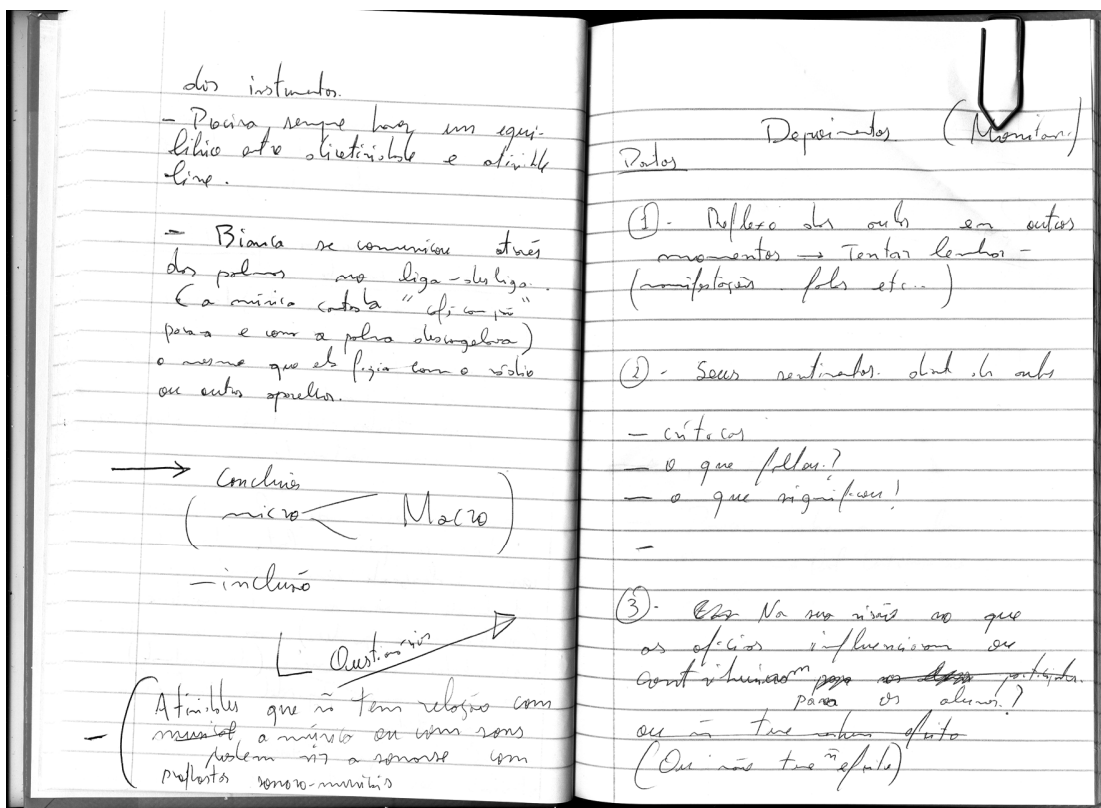 dos instrumentos.
- Precisa sempre haver um equi-
líbrio entre diretividade e atividade
livre.
- Bianca se comunicou através
dos palmas no liga-desliga.
(a música contava "
para e com a palma descongelava)
o mesmo que ela fazia com o rádio
ou outros aparelhos.
→ Conclusões
(micro Macro)
- inclusão
Questionários
- (Atividades que ñ tem relação com
musical, a música ou com sons
podem vir a somar-se com
propostas sonoro-musicais
Depoimentos (Monitor.)
Pontos
① - Reflexo das aulas em outros
momentos → Tentar lembrar -
(manifestações. falas etc...)
② - Seus sentimentos. das aulas
- críticas
- o que faltou?
- o que significou!
-
③ - Na sua visão no que
as oficinas influenciaram ou
contribuíram
para os alunos?
ou ñ teve nenhum efeito
(Ou não teve ñ efeito)